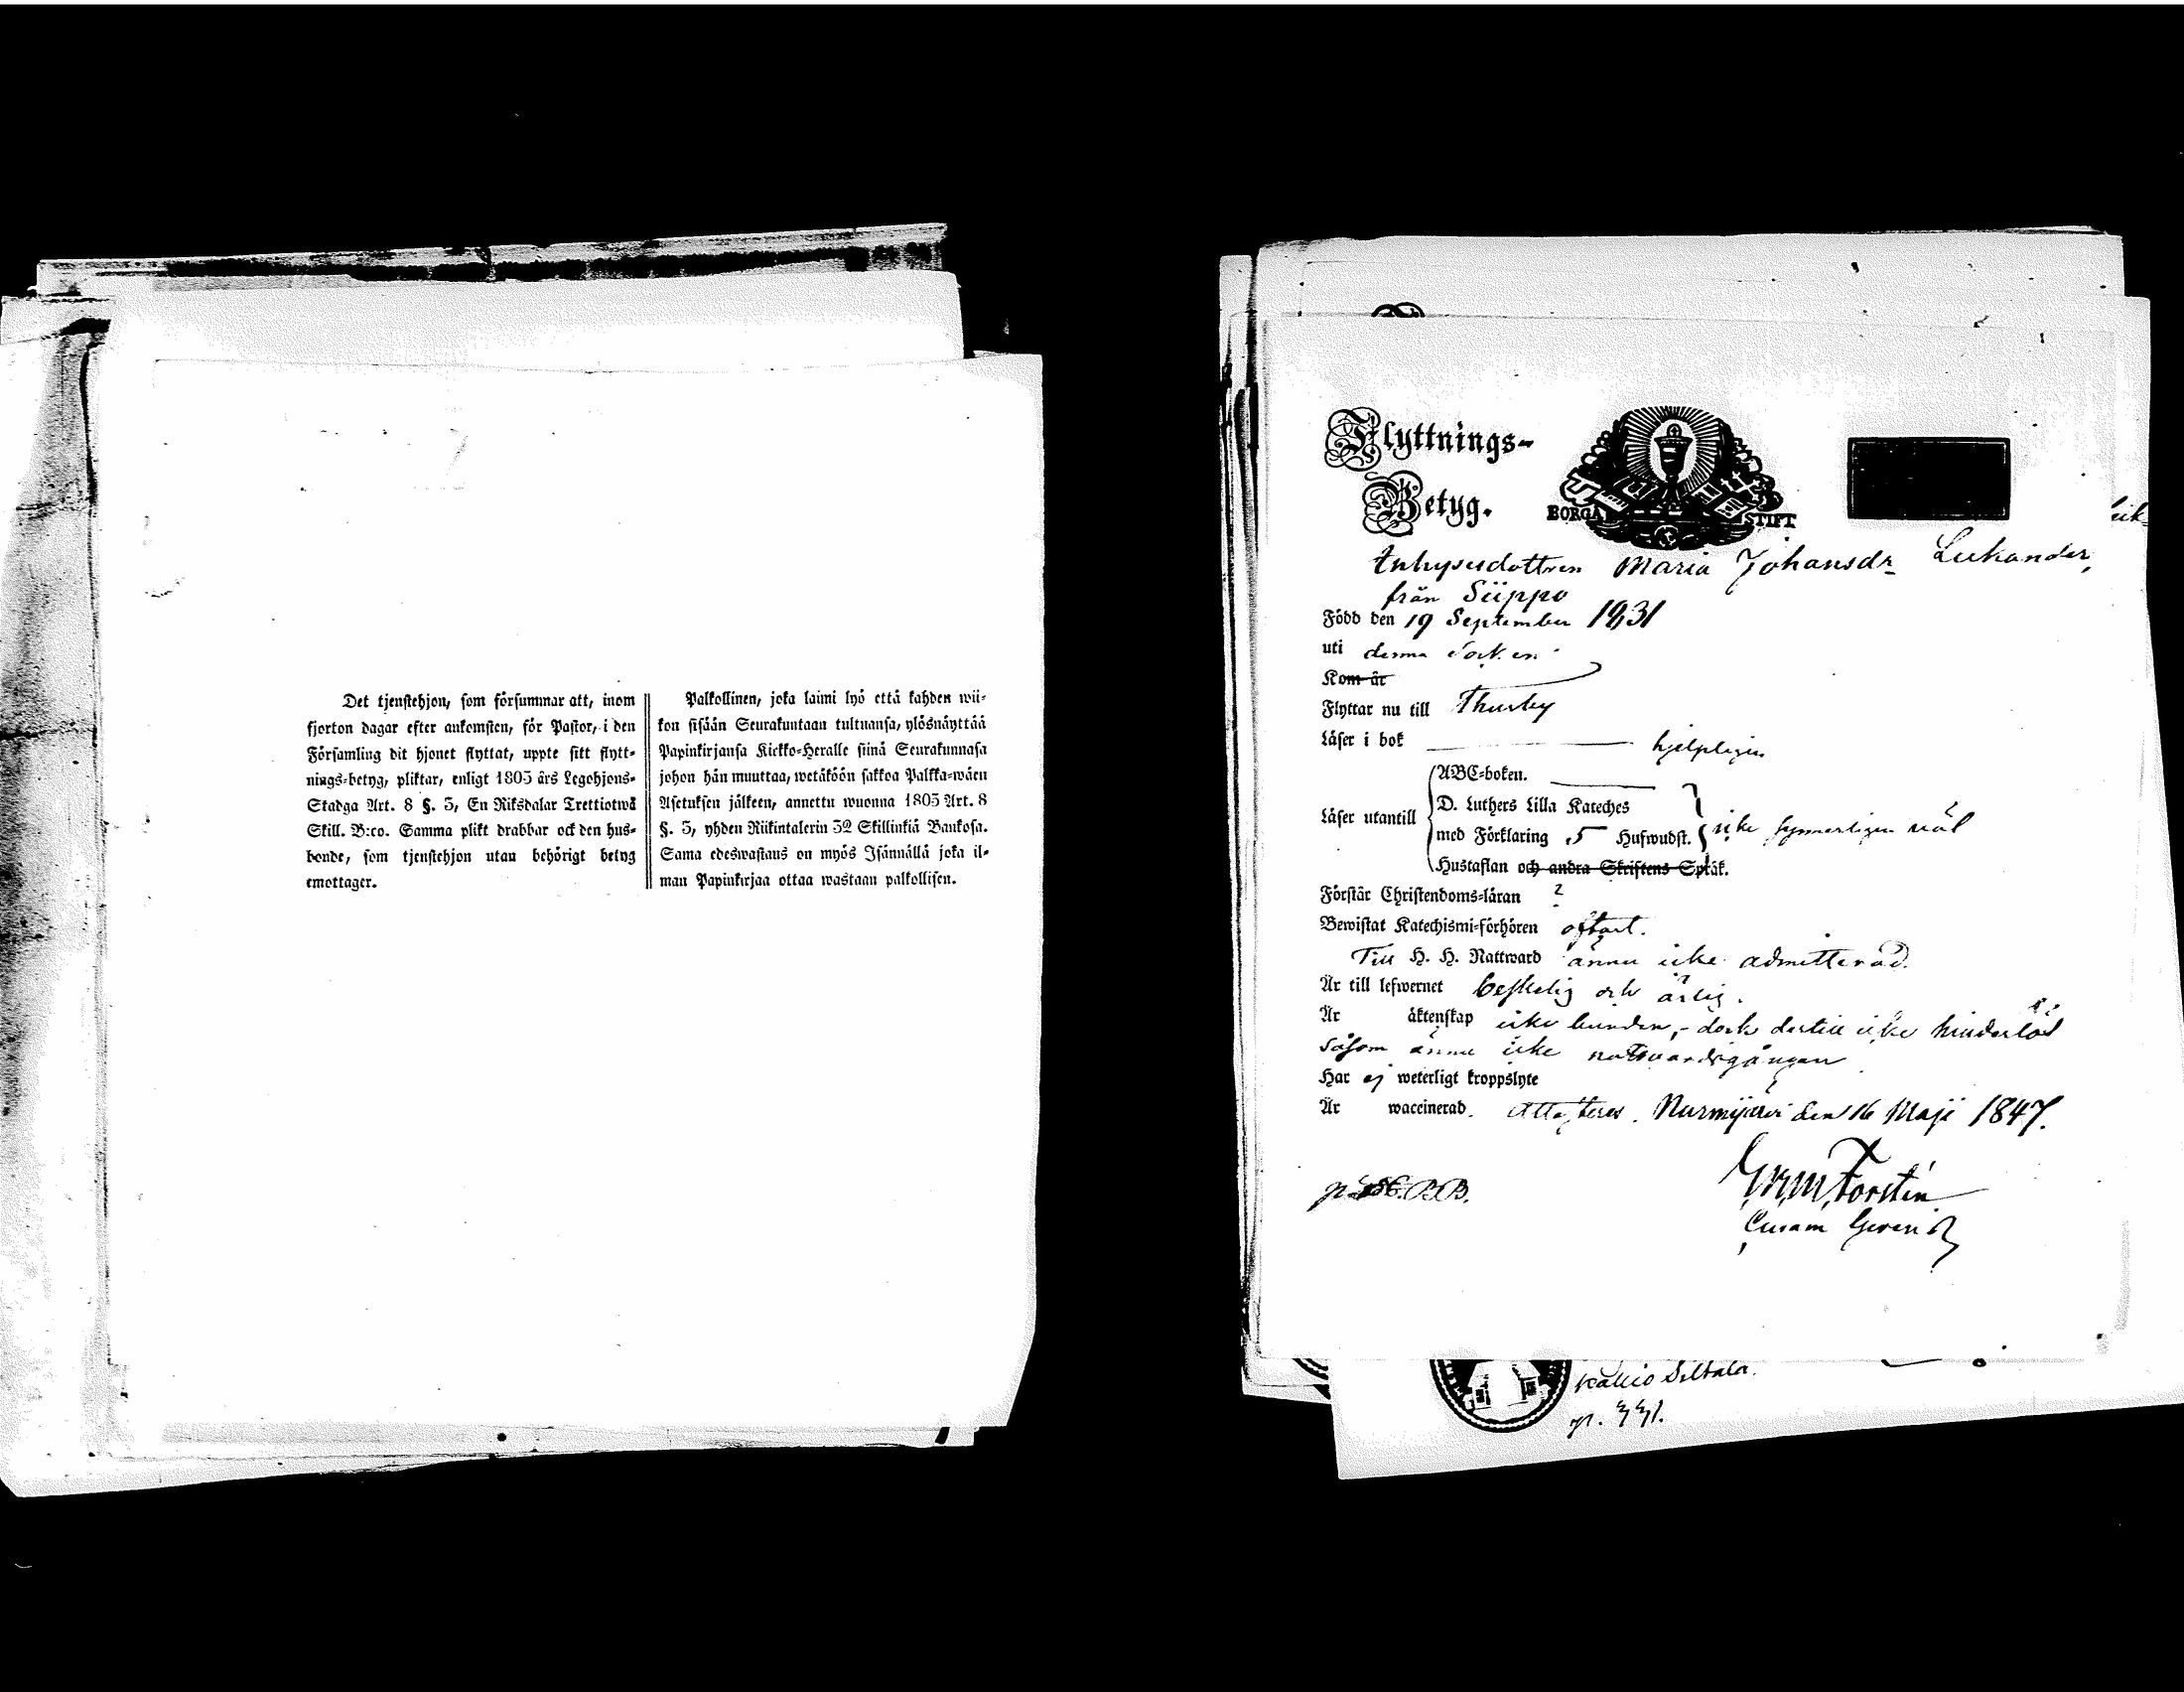 Det tjenstehjon, som försummar att, inom
fjorton dagar efter ankomsten, för Pastor, i den
Församling dit hjonet flyttat, uppte sitt flytt-
nings-betyg, pliktar, enligt 1805 års Legohjons-
Stadga Art. 8 §. 5, En Riksdalar Trettiotwå
Skill. B:co. Samma plikt drabbar ock den hus-
bonde, som tjenstehjon utan behörigt betyg
emottager.
Palkollinen, joka laimi lyö että kahden wii-
kon sisään Seurakuntaan tultuansa, ylösnäyttää
Papinkirjansa Kirkko-Heralle siinä Seurakunnasa
johon hän muuttaa, wetäköön sakkoa Palkka-wäen
Asetuksen jälkeen, annettu wuonna 1805 Art. 8
§. 5, yhden Riikintalerin 32 Skillinkiä Bankosa.
Sama edeswastaus on myös Isännällä joka il-
man Papinkirjaa ottaa wastaan palkollisen.
Flyttnings-
Betyg.
BORGÅ STIFT
Inhysesdottren Maria Johansdr Lukander,
från Siippo
Född den 19 September 1831
uti denna Socken
Kom år
Flyttar nu till Thusby
Läser i bok hjelpligen
Läser utantill
ABC-boken.
D. Luthers Lilla Kateches
med Förklaring 5 Hufwudst. icke synnerligen väl
Hustaflan och andra Skriftens Språk.
Förstår Christendoms-läran ?
Bewistat Katechismi-förhören oftast.
Till H. H. Nattward ännu icke admitterad.
Är till lefwernet beskelig och ärlig.
Är äktenskap icke bunden, - dock dertill icke hinderlös
såsom ännu icke nattvardsgången
Har ej weterligt kroppslyte
Är waccinerad. Attesteras. Nurmijärvi den 16 Maji 1847.
Forstén
p. B.B.
Kallio Siltala.